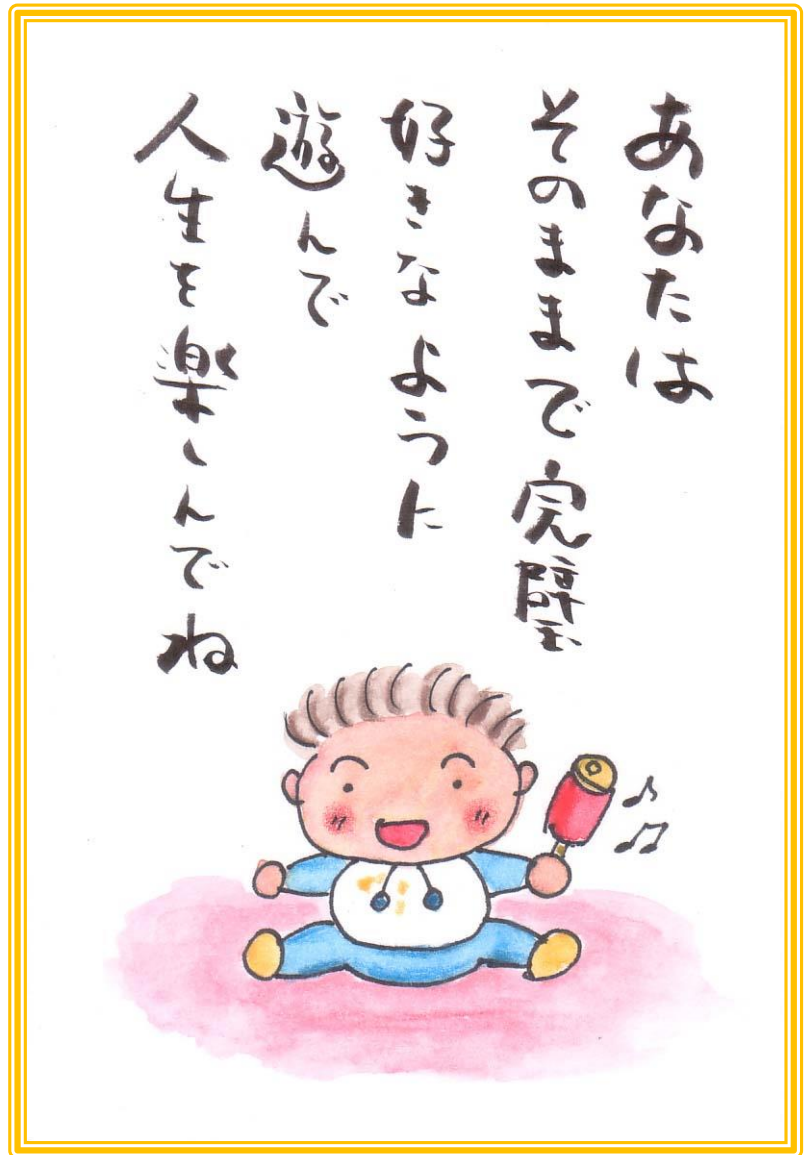 あなたは
そのままで完璧
好きなように
遊んで
人生を楽しんでね